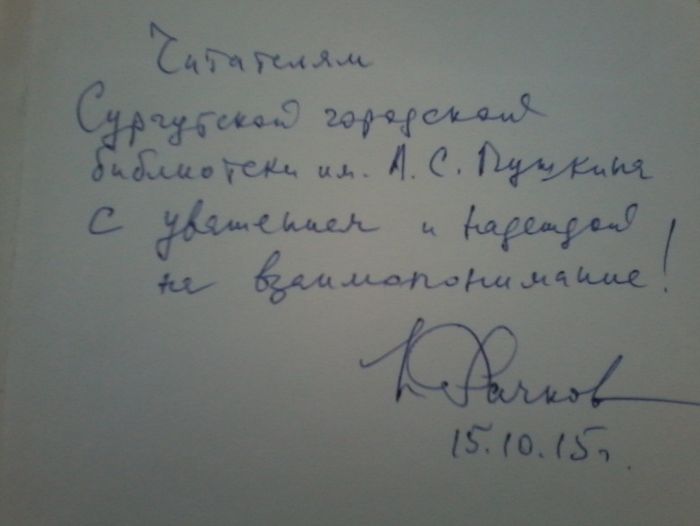 Читателям
Сургутской городской
библиотеки им. А. С. Пушкина
с уважением и надеждой
на взаимопонимание!
Н. Рачков
15.10.15 г.